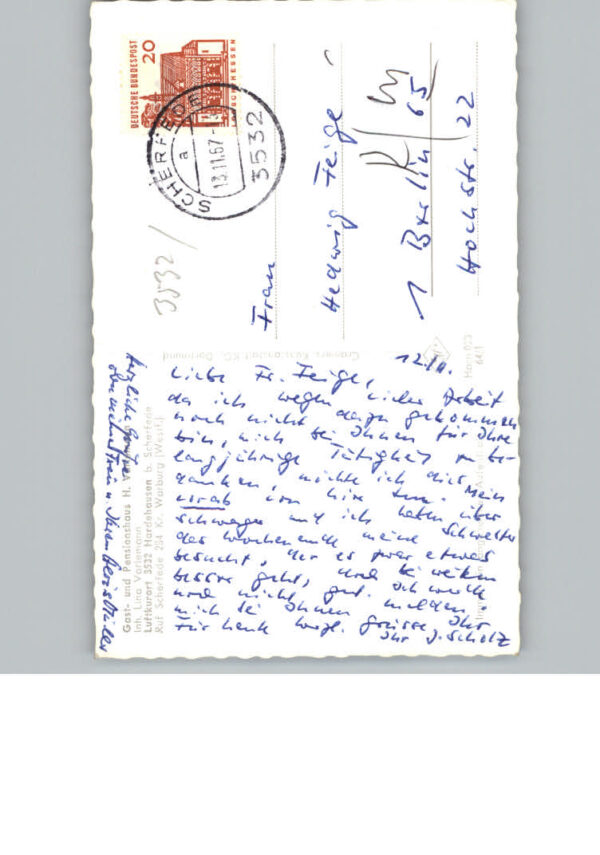 12/11.
Liebe Fr. Feige,
da ich wegen vieler Arbeit
noch nicht dazu gekommen
bin, mich bei Ihnen für Ihre
langjährige Tätigkeit zu be-
danken, möchte ich dies
vorab von hier tun. Mein
Schwager und ich haben über
das Wochenende meine Schwester
besucht, der es zwar etwas
besser geht, doch bei weitem
noch nicht gut. Ich werde
mich bei Ihnen melden.
Für heute herzl. Grüsse Ihr
Ihr J. Scholz
Herzliche Grüße
Gast- und Pensionshaus H.
Inh. Lina Variemann
Luftkurort 3532 Hardehausen b. Scherfede
Ruf Scherfede 234 Kr. Warburg (Westf.)
Cramers Kunstanstalt KG, Dortmund
Harn 023
64/1
DEUTSCHE BUNDESPOST
20
SCHERFEDE
a
13.11.67
3532
3532/
Frau
Hedwig Feige
1 Berlin 65
Hochstr. 22